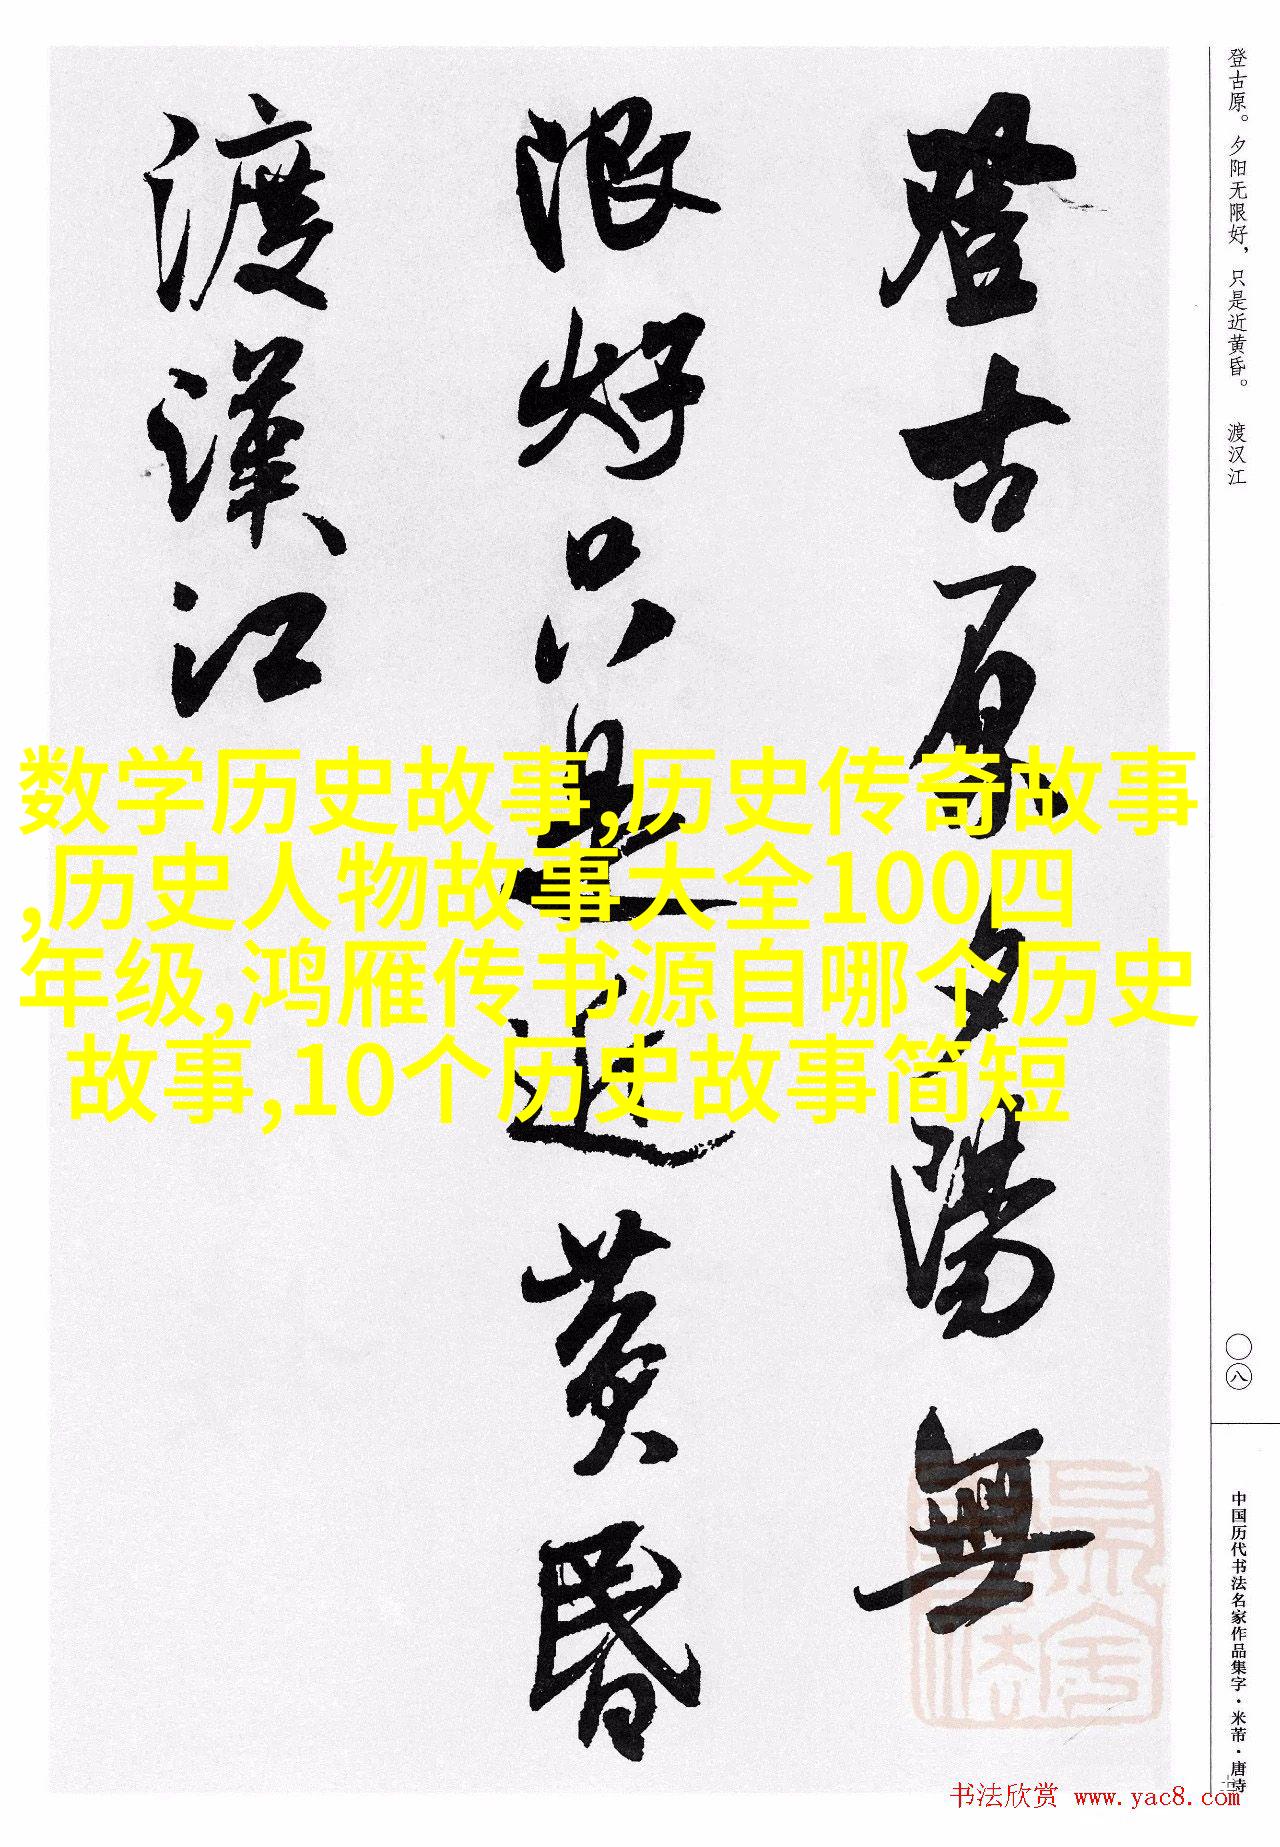 登古原夕陽無
限好只是近黄昏
渡漢江
登古原。夕阳无限好，只是近黄昏。 渡汉江
〇八
中国历代书法名家作品集字·米芾·唐诗
数学历史故事,历史传奇故事
,历史人物故事大全100四
年级,鸿雁传书源自哪个历史
故事,10个历史故事简短
书法欣赏 www.yac8.com